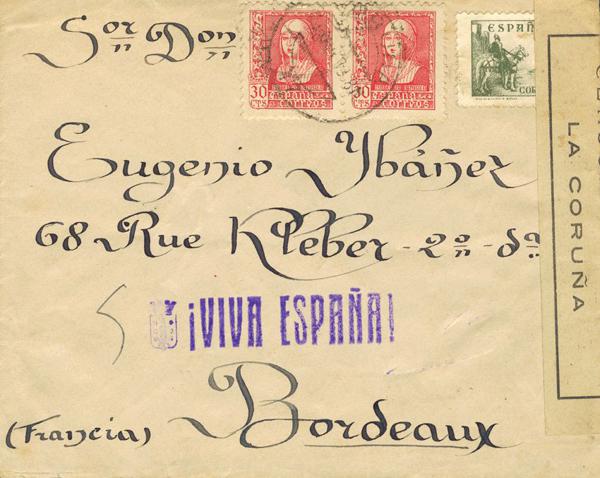 Sor Don
30 CTS ESPAÑA CORREOS
30 CTS ESPAÑA CORREOS
ESPAÑA
COR
Eugenio Ybáñez
68 Rue Kleber - 2º - dª
¡VIVA ESPAÑA!
(Francia) Bordeaux
LA CORUÑA